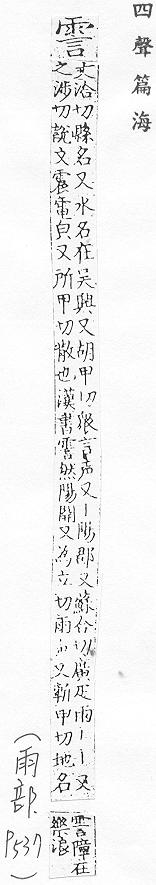 四聲篇海
霅
丈洽切縣名又水名在吳興又胡甲切眾言声又丨陽郡又蘇合切廣疋雨丨丨又
之涉切說文霅霅震電皃又所甲切散也漢書霅然陽開又為立切雨聲又斬甲切地名
霅障在
樂浪
(雨部 P537)